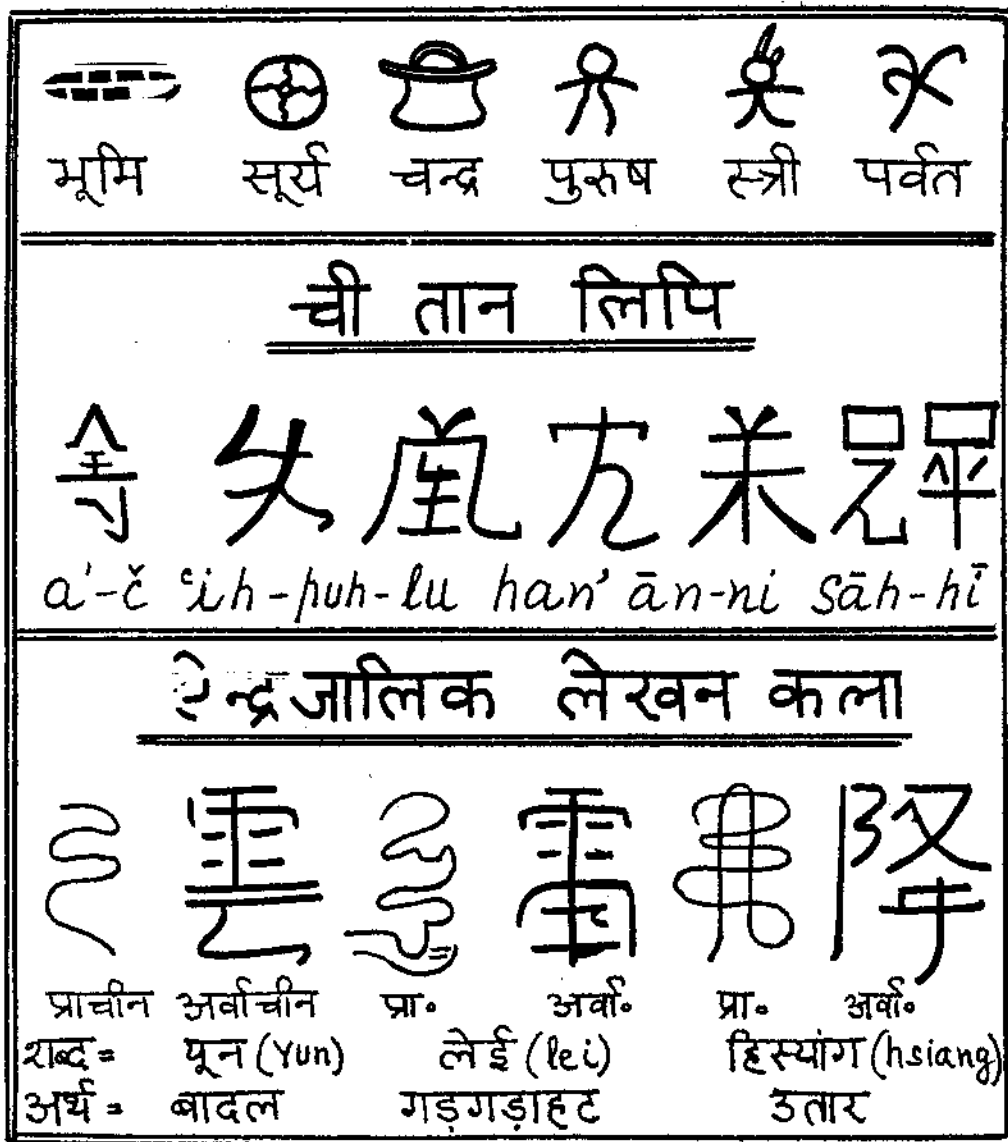 भूमि सूर्य चन्द्र पुरुष स्त्री पर्वत
ची तान लिपि
a'-č 'ih-puh-lu han' ān-ni sāh-hī
ऐन्द्रजालिक लेखन कला
雲 雷 降
प्राचीन अर्वाचीन प्रा॰ अर्वा॰ प्रा॰ अर्वा॰
शब्द = यून (Yun) लेई (lei) हिस्यांग (hsiang)
अर्थ = बादल गड़गड़ाहट उतार